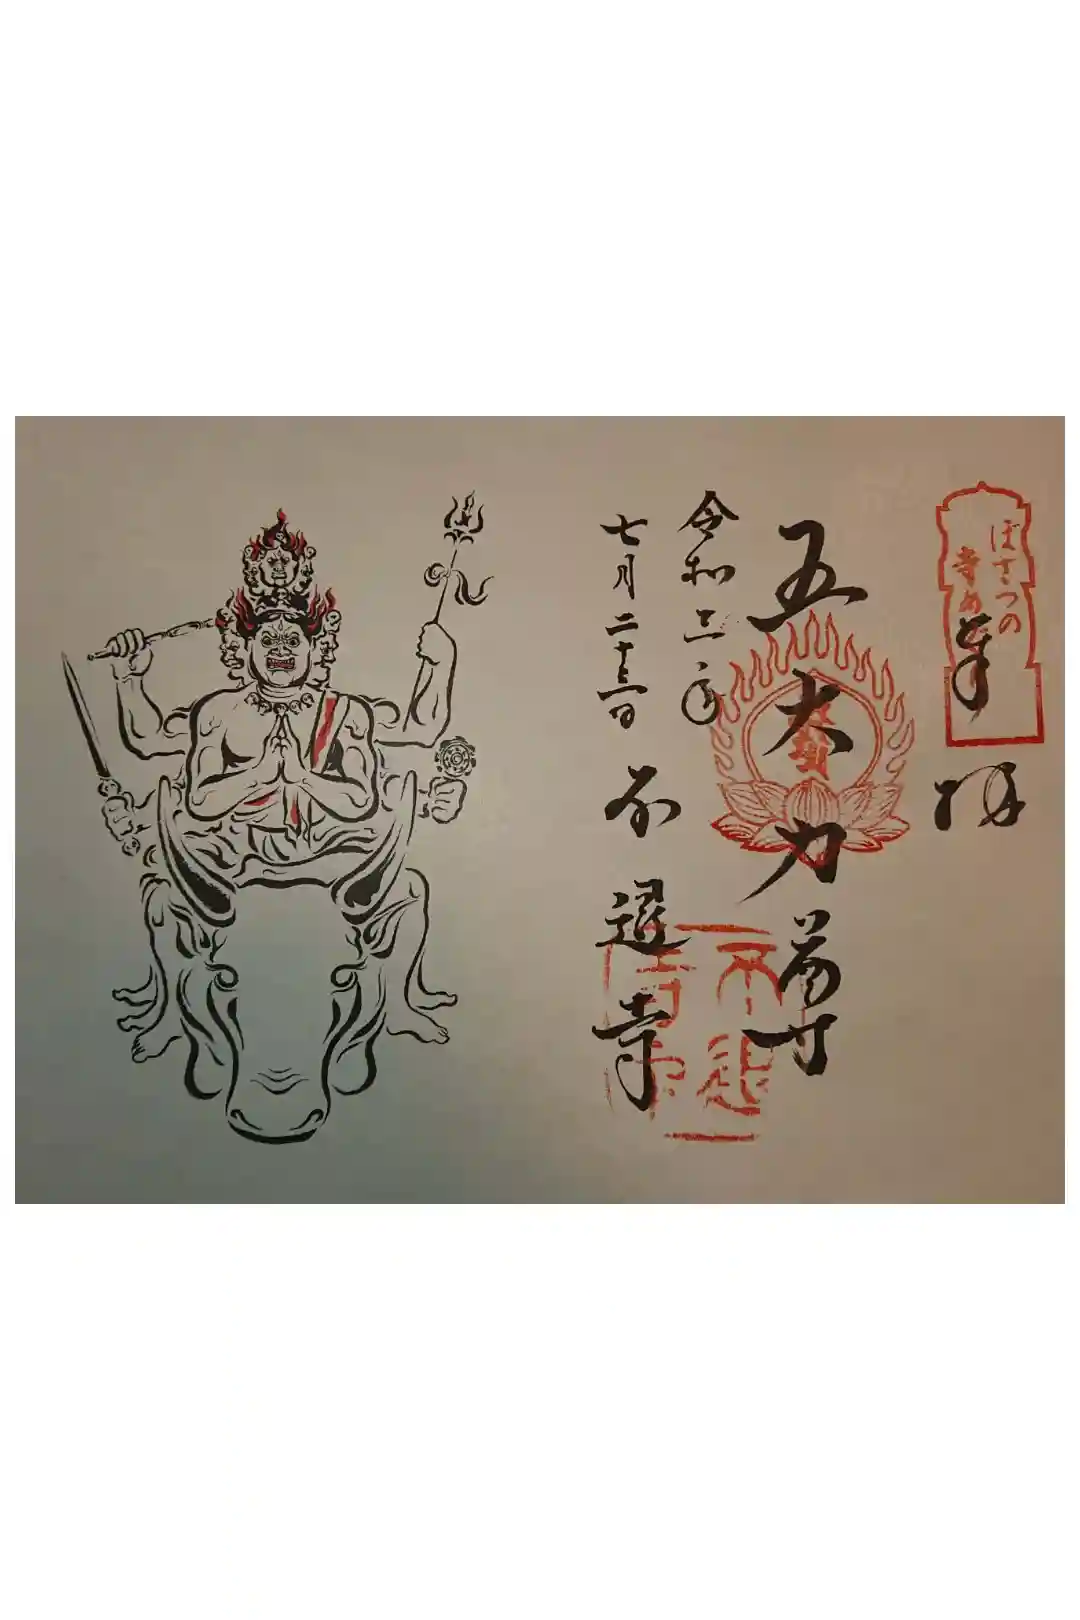 ぼさつの
寺め
奉拝
五大力尊
令和三年
七月二十三日
不退寺